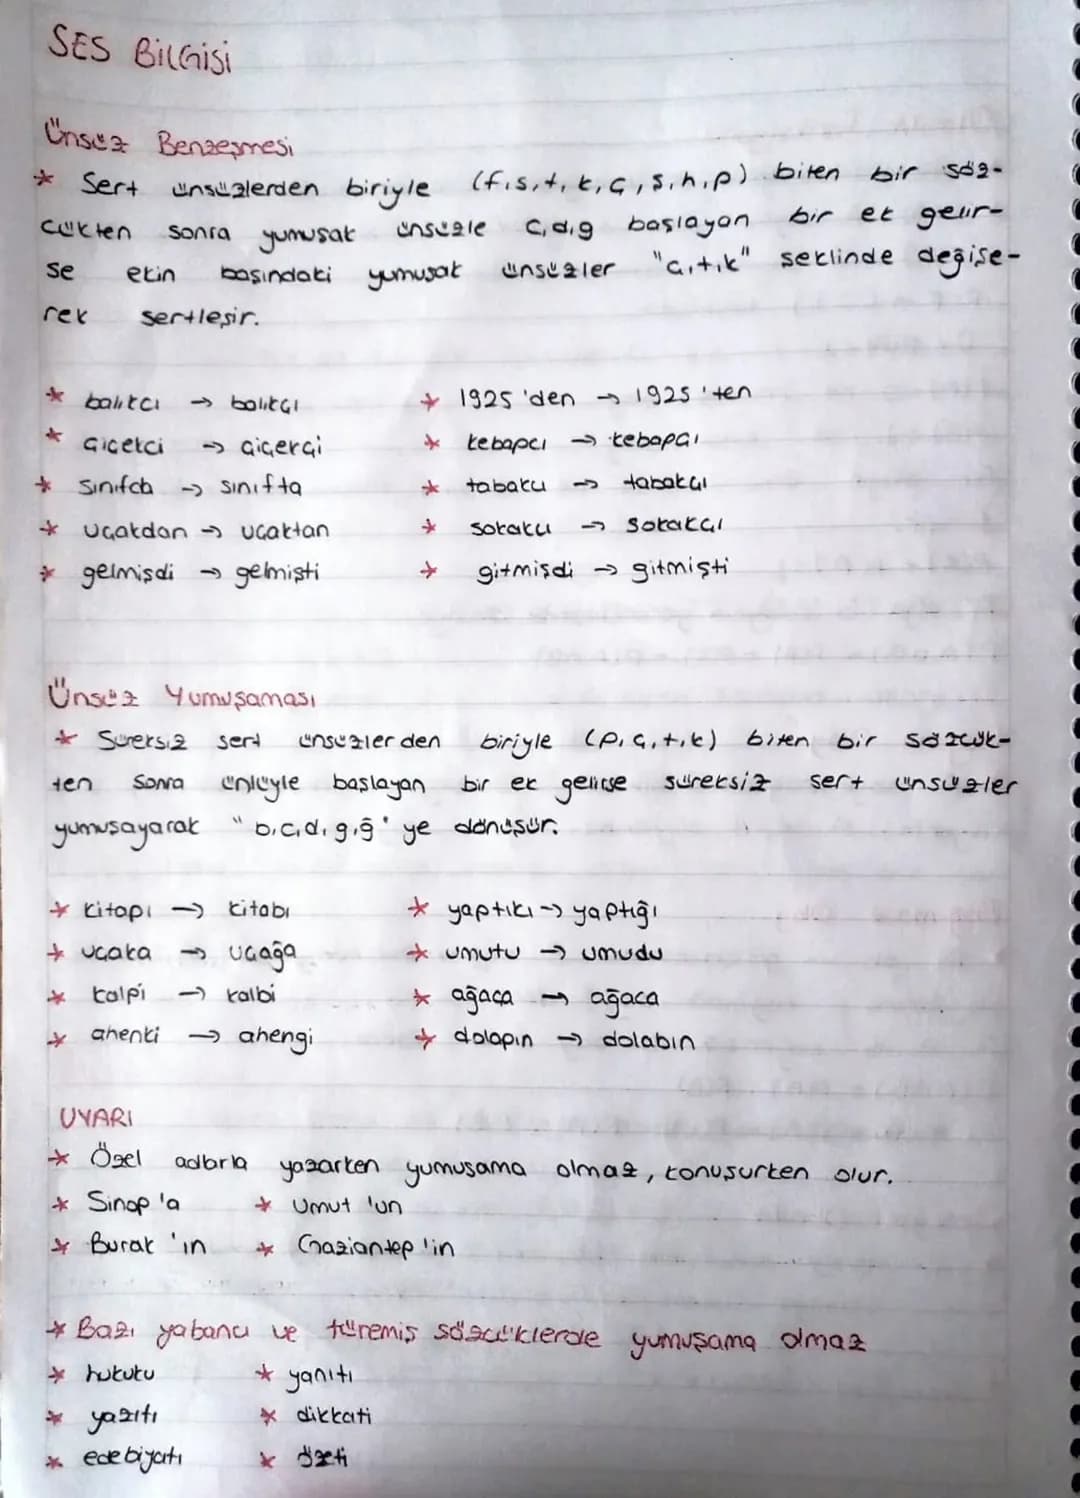 SES BİLGİSİ
Ünsüz Benzeşmesi
* Sert ünsüzlerden biriyle (f,s,t,k,ç,ş,h,p) biten bir söz-
cükten sonra yumuşak ünsüzle c,d,g başlayan bir ek gelir-
se ekin başındaki yumuşak ünsüzler "ç,t,k" şeklinde değişe-
rek sertleşir.
* balıkcı → balıkçı * 1925'den → 1925'ten
* çiçekci → çiçekçi * kebapcı → kebapçı
* sınıfda → sınıfta * tabakcı → tabakçı
* uçakdan → uçaktan * sokakcı → sokakçı
* gelmişdi → gelmişti * gitmişdi → gitmişti
Ünsüz Yumuşaması
* Süreksiz sert ünsüzlerden biriyle (p,ç,t,k) biten bir sözcük-
ten sonra ünlüyle başlayan bir ek gelirse süreksiz sert ünsüzler
yumuşayarak "b,c,d,g,ğ" ye dönüşür.
* kitapı → kitabı * yaptıkı → yaptığı
* uçaka → uçağa * umutu → umudu
* kalpi → kalbi * ağaça → ağaca
* ahenki → ahengi * dolapın → dolabın
UYARI
* Özel adlarla yazarken yumuşama olmaz, konuşurken olur.
* Sinop'a * Umut'un
* Burak'ın * Gaziantep'in
* Bazı yabancı ve türemiş sözcüklerde yumuşama olmaz
* hukuku * yanıtı
* yazıtı * dikkati
* edebiyatı * özeti